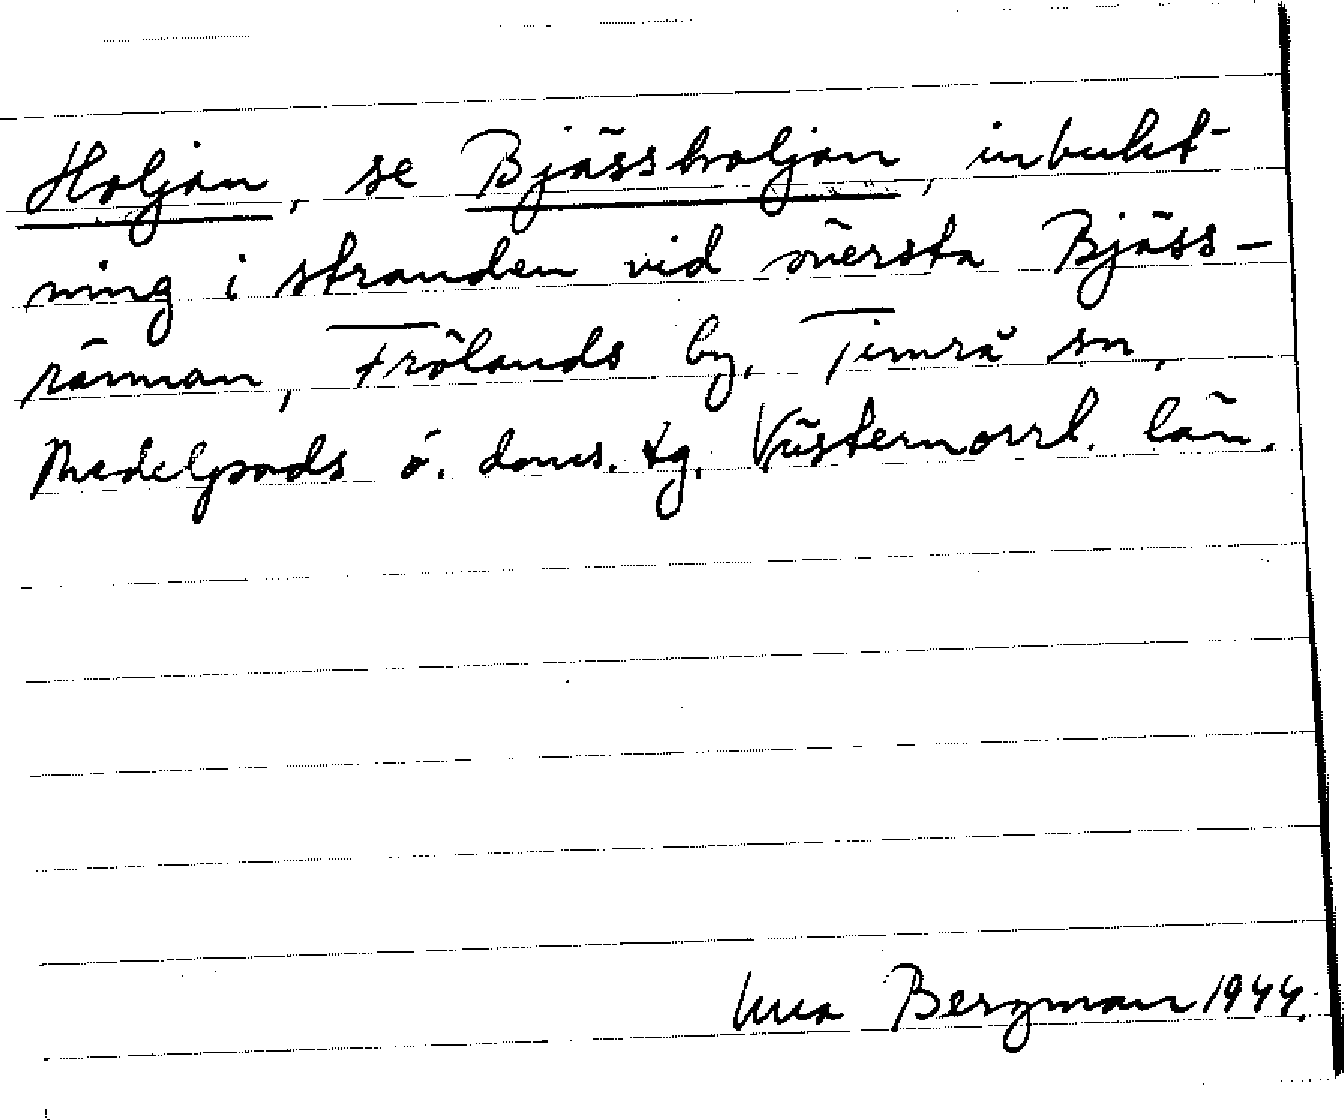 Holjan, se Bjässholjan, inbukt-
ning i stranden vid översta Bjäss-
rännan, Frölands by, Timrå sn,
Medelpads ö. doms. tg. Västernorrl. län.
Una Bergman 1944.